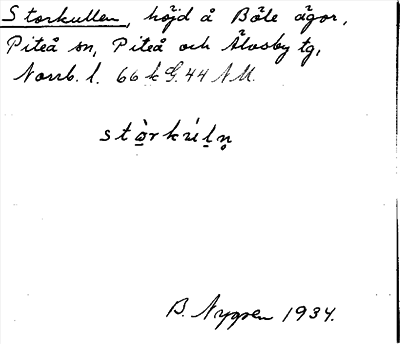 Storkullen, höjd å Böle ägor,
Piteå sn, Piteå och Älvsby tg,
Norrb. l. 66 k G. 44 NM.
stò̱rkúḻn̥
B. Nygren 1934.